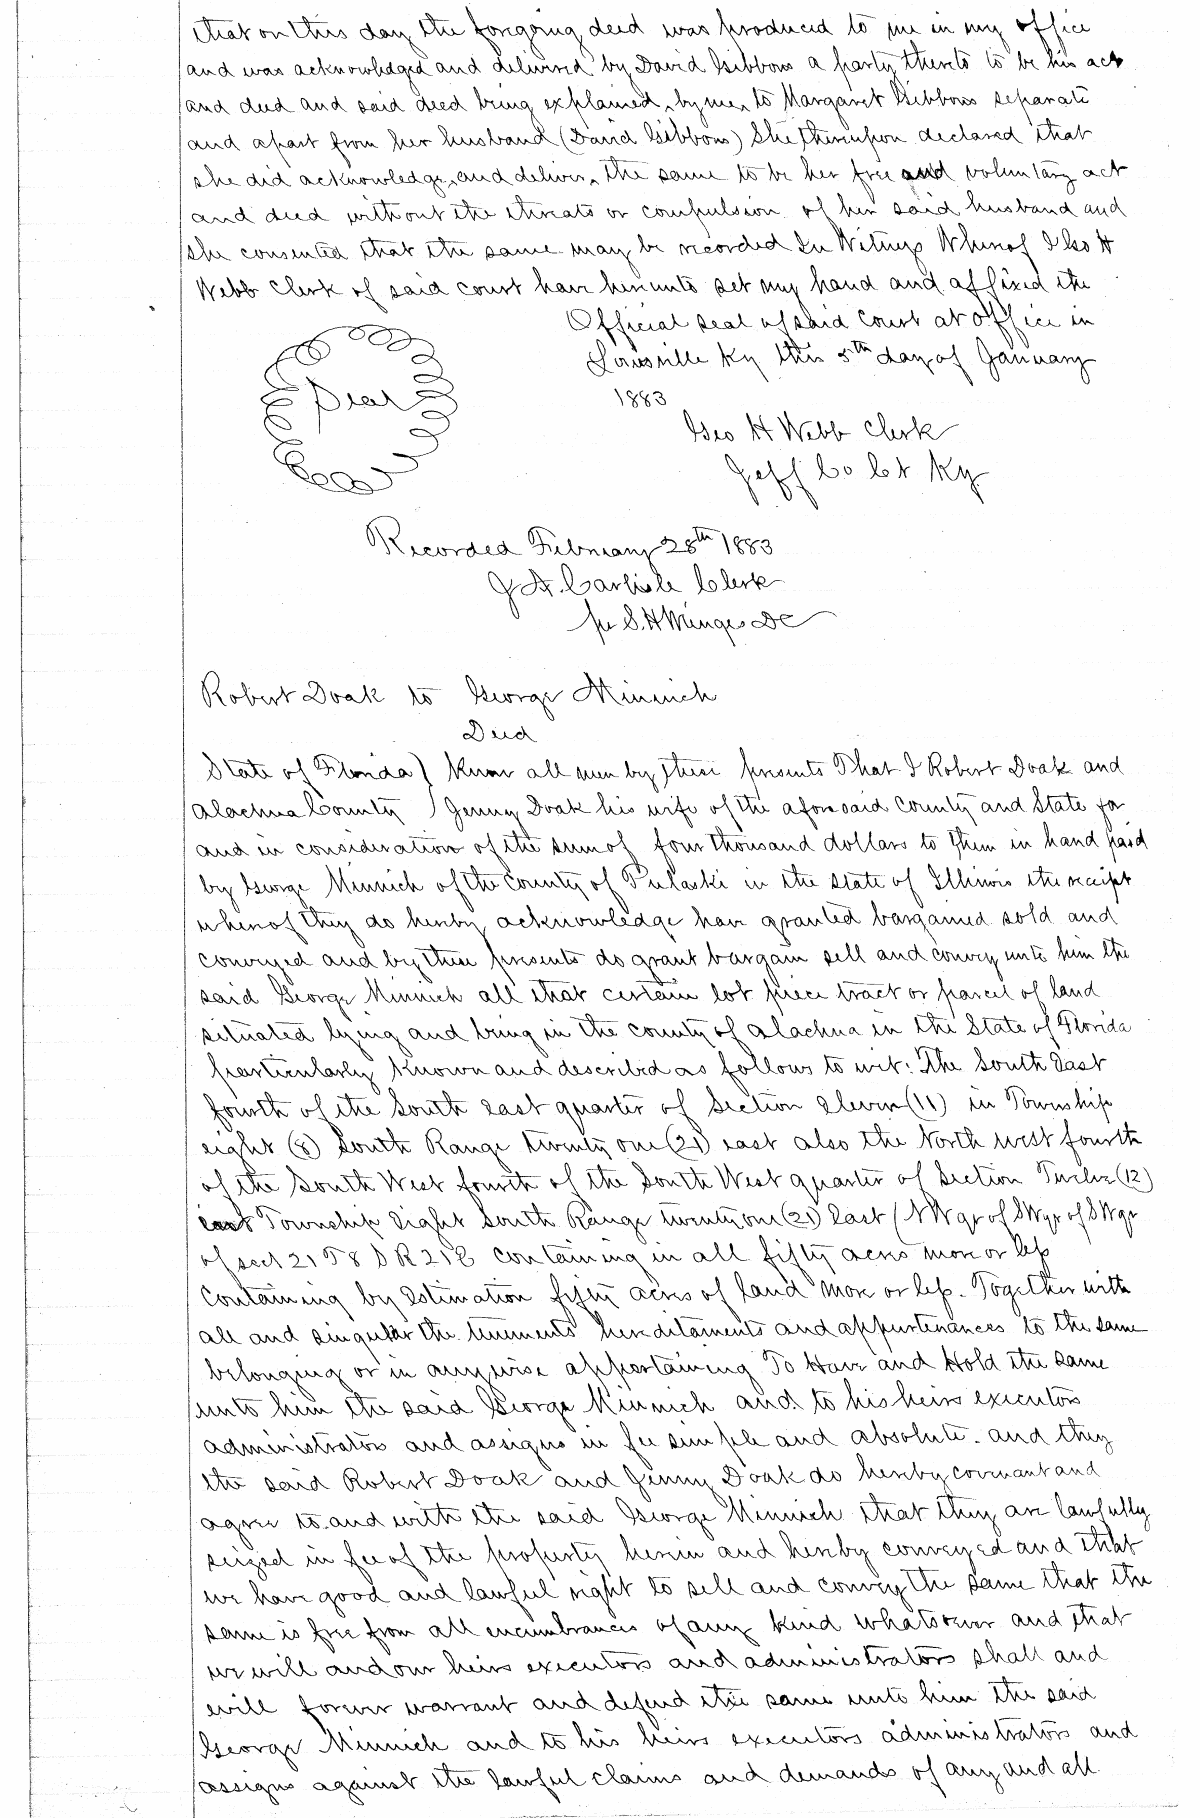 that on this day the foregoing deed was produced to me in my office
and was acknowledged and delivered by David Gibbons a party thereto to be his act
and deed and said deed being explained by me to Margaret Gibbons separate
and apart from her husband (David Gibbons) She thereupon declared that
she did acknowledge and deliver the same to be her free and voluntary act
and deed without the threats or compulsion of her said husband and
she consented that the same may be recorded In Witness Whereof I Geo H
Webb Clerk of said court have hereunto set my hand and affixed the
Official seal of said Court at office in
Louisville Ky this 5th day of January
1883
Seal
Geo H Webb Clerk
Jeff Co Ct Ky
Recorded February 28th 1883
J A. Carlisle Clerk
per S. H Wienges DC
Robert Doak to George Minnich
Deed
State of Florida ) Know all men by these presents That I Robert Doak and
Alachua County ) Jenny Doak his wife of the aforesaid county and State for
and in consideration of the sum of four thousand dollars to them in hand paid
by George Minnich of the County of Pulaski in the state of Illinois the receipt
whereof they do hereby acknowledge have granted bargained sold and
conveyed and by these presents do grant bargain sell and convey unto him the
said George Minnich all that certain lot piece tract or parcel of land
situated lying and being in the county of Alachua in the State of Florida
particularly known and described as follows to wit: The South East
fourth of the South east quarter of Section Eleven (11) in Township
eight (8) South Range twenty one (21) east also the North west fourth
of the South West fourth of the South West quarter of Section Twelve (12)
east Township Eight South Range twenty one (21) East (NW qr of SW qr of SW qr
of sect 21 T 8 S R 21 E containing in all fifty acres more or less
Containing by Estimation fifty acres of land more or less. Together with
all and singular the tenements hereditaments and appurtenances to the same
belonging or in anywise appertaining To Have and Hold the same
unto him the said George Minnich and to his heirs executors
administrators and assigns in fee simple and absolute. and they
the said Robert Doak and Jenny Doak do hereby covenant and
agree to and with the said George Minnich that they are lawfully
seized in fee of the property herein and hereby conveyed and that
we have good and lawful right to sell and convey the same that the
same is free from all encumbrances of any kind whatsoever and that
we will and our heirs executors and administrators shall and
will forever warrant and defend the same unto him the said
George Minnich and to his heirs executors administrators and
assigns against the lawful claims and demands of any and all